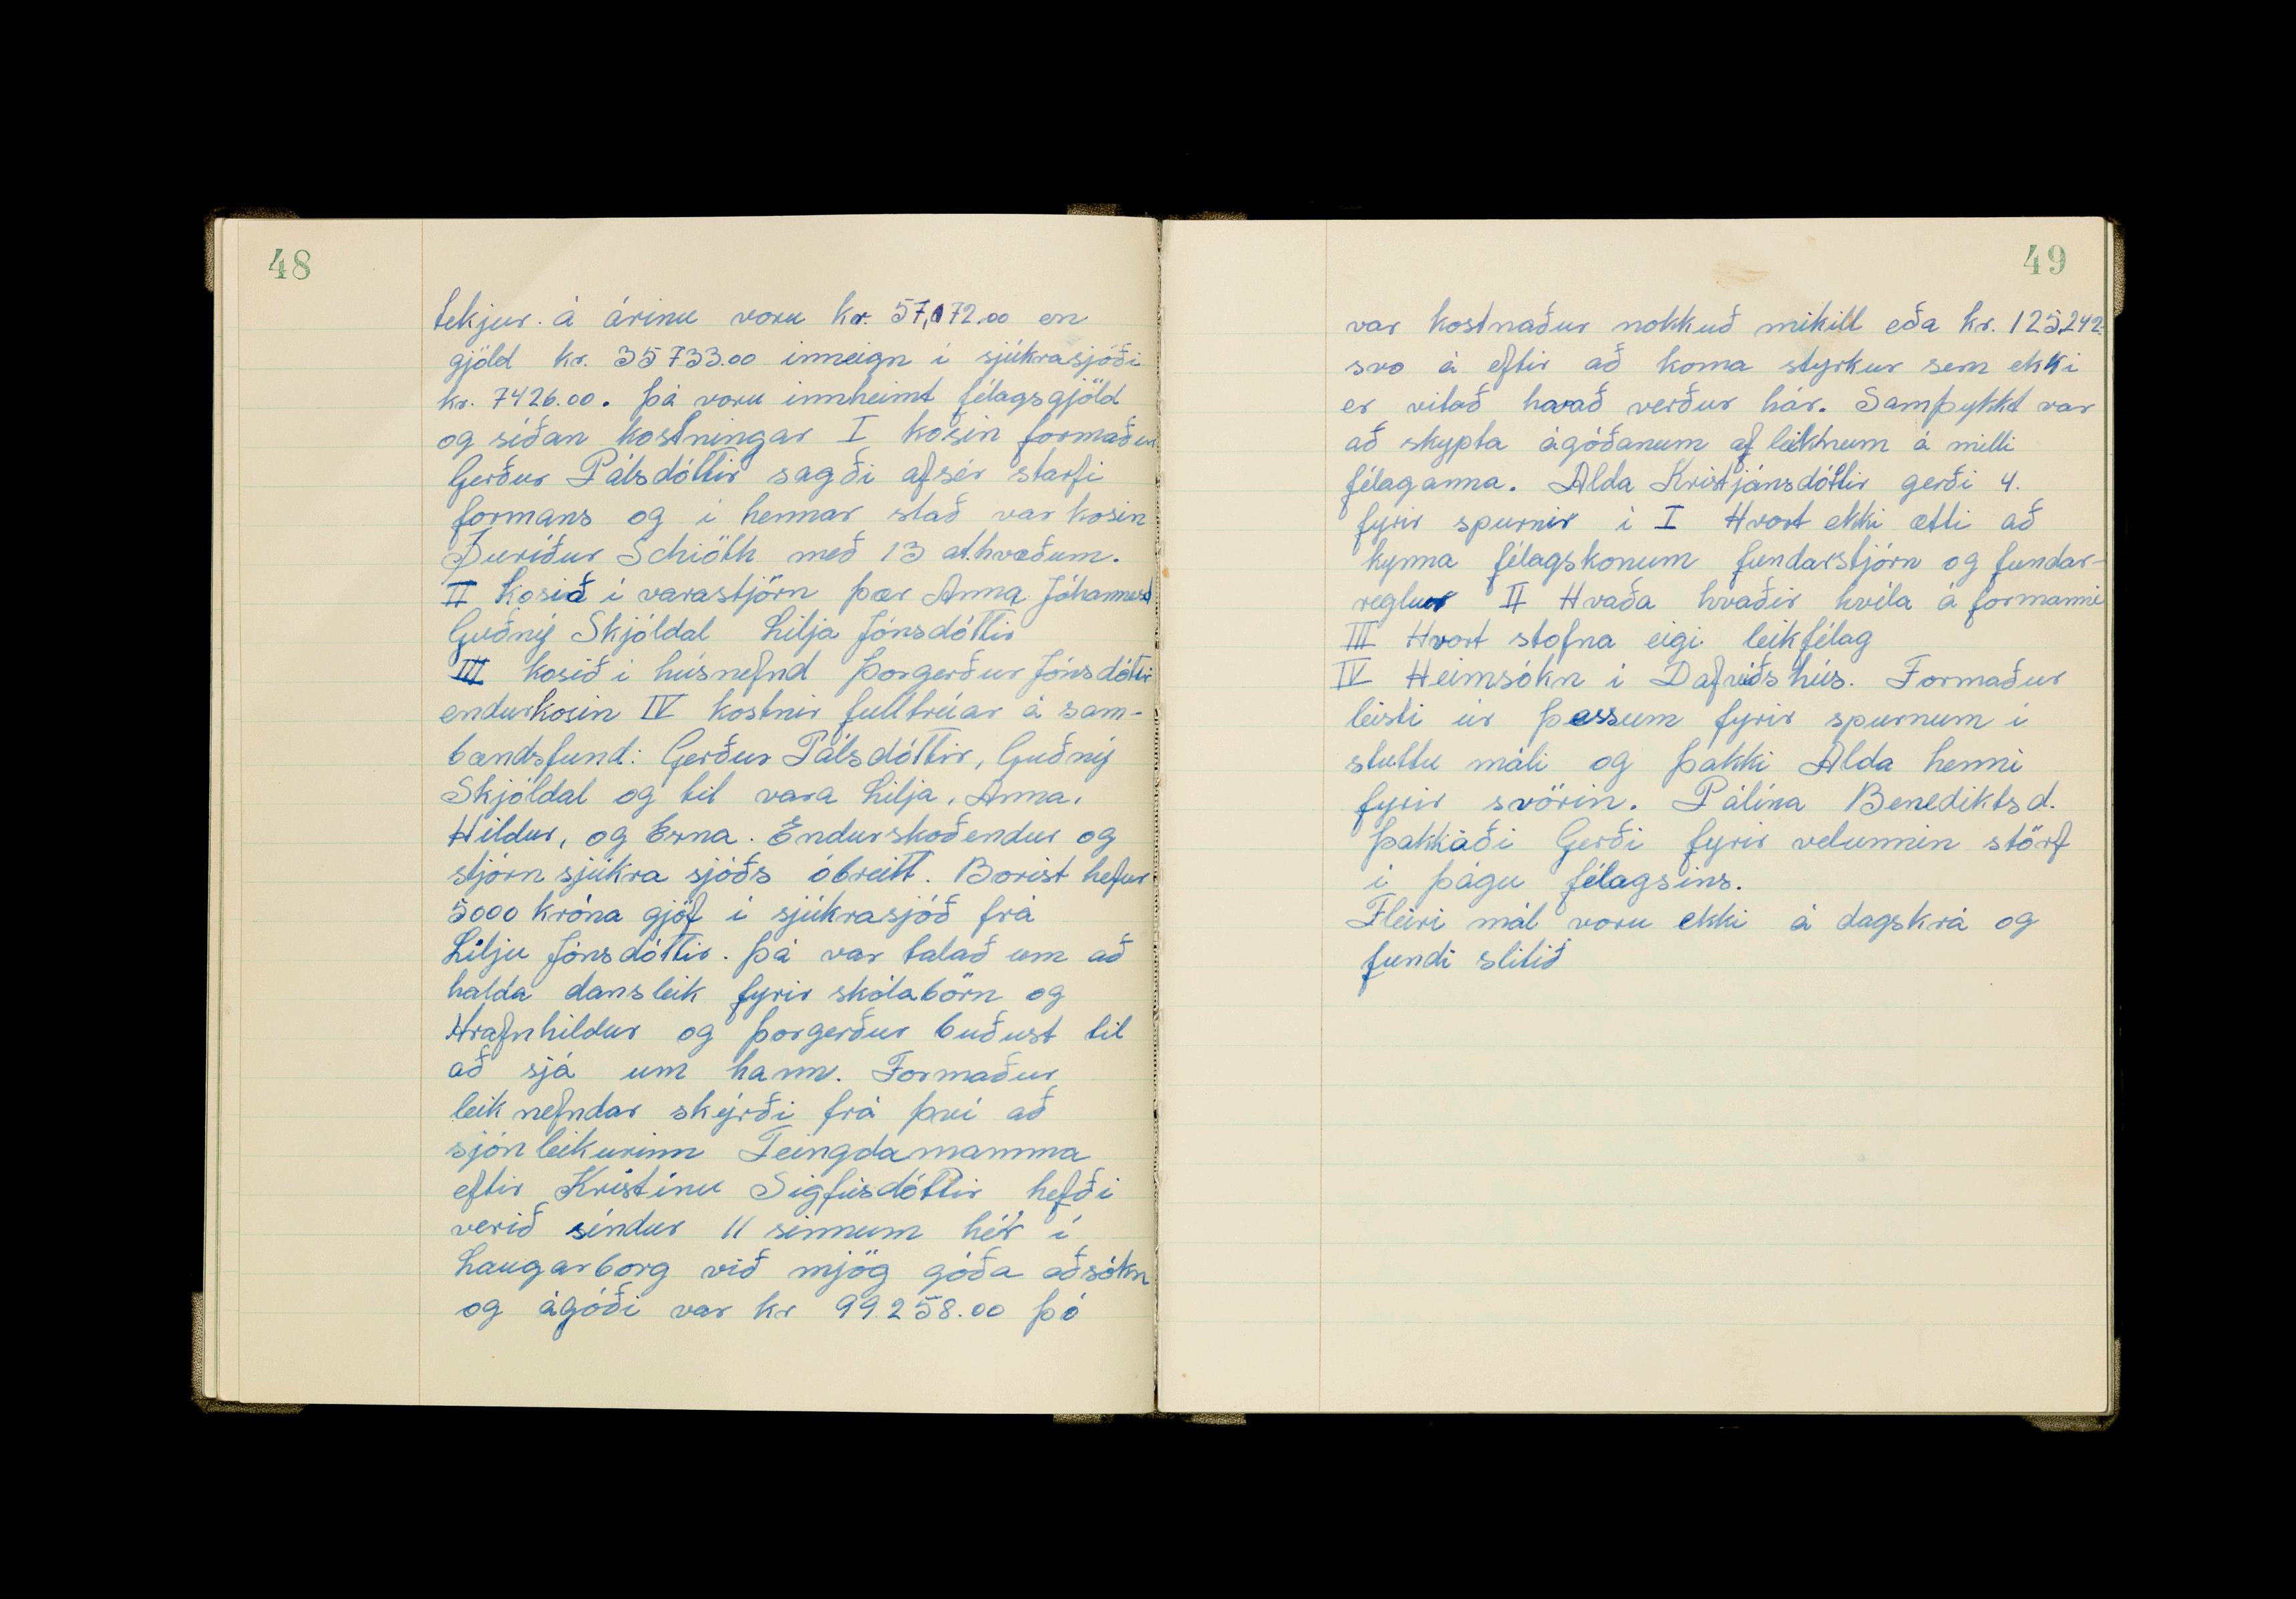 48
tekjur á árinu voru kr. 57,172.00 en
gjöld kr. 35733.00 inneign í sjúkrasjóði
kr. 7426.00. Þá voru innheimt félagsgjöld
og síðan kostningar I kosin formaður
Gerður Pálsdóttir sagði afsér starfi
formans og í hennar stað var kosin
Þuríður Schiöth með 13 athvæðum.
II Kosið í varastjórn þær Anna Jóhannesd
Guðný Skjóldal Lilja Jónsdóttir
III kosið í húsnefnd Þorgerður Jónsdóttir
endurkosin IV kostnir fulltrúar á sam-
bandsfund: Gerður Pálsdóttir, Guðný
Skjóldal og til vara Lilja, Anna,
Hildur, og Erna. Endurskoðendur og
stjórn sjúkra sjóðs óbreitt. Borist hefur
5000 króna gjöf í sjúkrasjóð frá
Lilju Jónsdóttir. Þá var talað um að
halda dansleik fyrir skólabörn og
Hrafnhildur og Þorgerður buðust til
að sjá um hann. Formaður
leiknefndar skýrði frá því að
sjónleikurinn Teingdamamma
eftir Kristínu Sigfúsdóttir hefði
verið síndur 11 sinnum hér í
Laugarborg við mjög góða aðsókn
og ágóði var kr 99.258.00 Þó
49
var kostnaður nokkuð mikill eða kr. 125,242-
svo á eftir að koma styrkur sem ekki
er vitað hvað verður hár. Samþykkt var
að skypta ágóðanum af leiknum á milli
félaganna. Alda Kristjánsdóttir gerði 4.
fyrir spurnir í I Hvort ekki ætti að
kynna félagskonum fundarstjórn og fundar-
reglur II Hvaða hvaðir hvíla á formanni
III Hvort stofna eigi leikfélag
IV Heimsókn í Dafvíðs hús. Formaður
leisti úr þessum fyrir spurnum í
stuttu máli og þakki Alda henni
fyrir svörin. Pálína Benediktsd.
þakkaði Gerði fyrir velunnin störf
í þágu félagsins.
Fleiri mál voru ekki á dagskrá og
fundi slitið